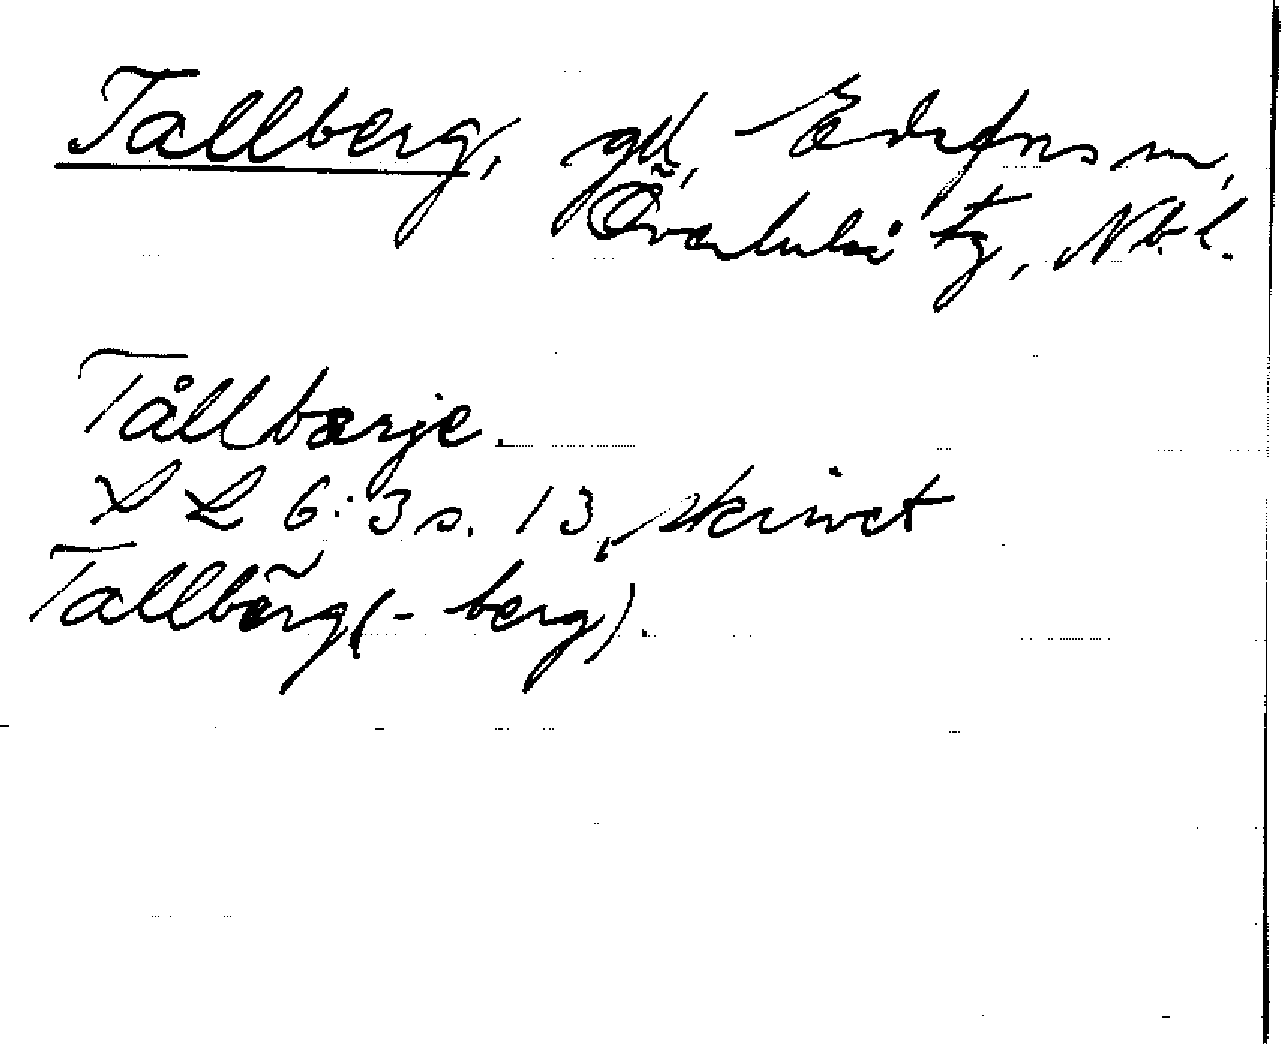 Tallberg, gd, Edefors sn,
Överluleå tg, Nbl.
Tållbærje.
LL 6:3 s. 13, skrivet
Tallbërg (-berg).